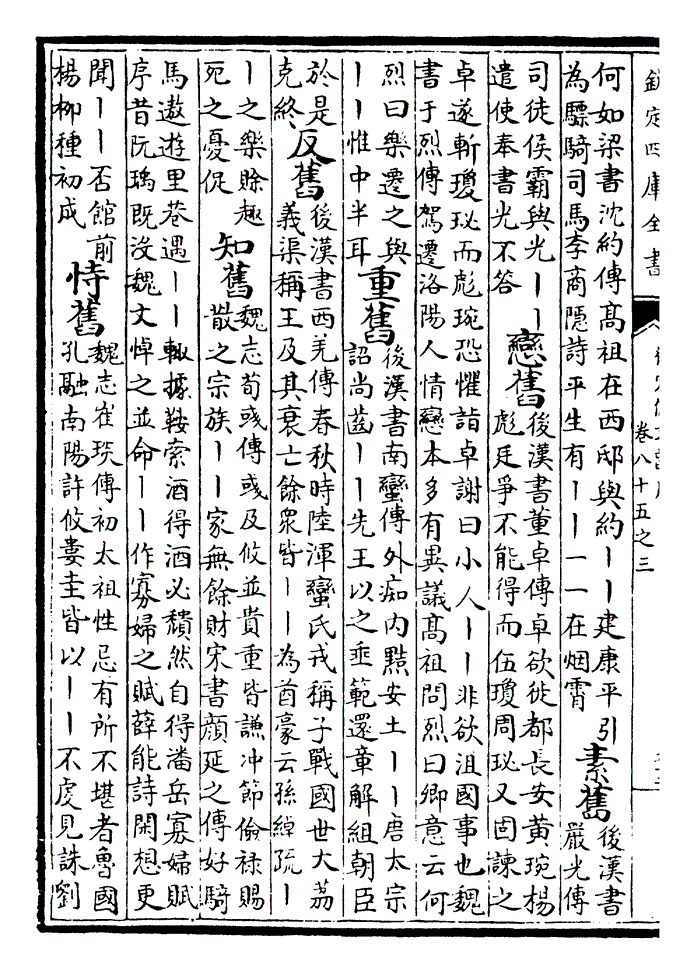 欽定四庫全書
卷八十五之三
何如梁書沈約傳髙祖在西邸與約丨丨建康平引
為驃騎司馬李商隱詩平生有丨丨一一在烟霄
素舊
後漢書
嚴光傳
司徒侯霸與光丨丨
遣使奉書光不答
戀舊
後漢書董卓傳卓欲徙都長安黃琬楊
彪廷爭不能得而伍瓊周珌又固諫之
卓遂斬瓊珌而彪琬恐懼詣卓謝曰小人丨丨非欲沮國事也魏
書于烈傳駕遷洛陽人情戀本多有異議髙祖問烈曰卿意云何
烈曰樂遷之與
丨丨惟中半耳
重舊
後漢書南蠻傳外痴内黠安土丨丨唐太宗
詔尚齒丨丨先王以之垂範還章解組朝臣
於是
克終
反舊
後漢書西羌傳春秋時陸渾蠻氏戎稱子戰國世大荔
義渠稱王及其衰亡餘衆皆丨丨為酋豪云孫綽疏丨
丨之樂賖趣
死之憂促
知舊
魏志荀彧傳彧及攸並貴重皆謙冲節儉祿賜
散之宗族丨丨家無餘財宋書顔延之傳好騎
馬遨遊里巷遇丨丨輙據鞍索酒得酒必頹然自得潘岳寡婦賦
序昔阮瑀既沒魏文悼之並命丨丨作寡婦之賦薛能詩閑想更
聞丨丨否館前
楊柳種初成
恃舊
魏志崔琰傳初太祖性忌有所不堪者魯國
孔融南陽許攸婁圭皆以丨丨不虔見誅劉